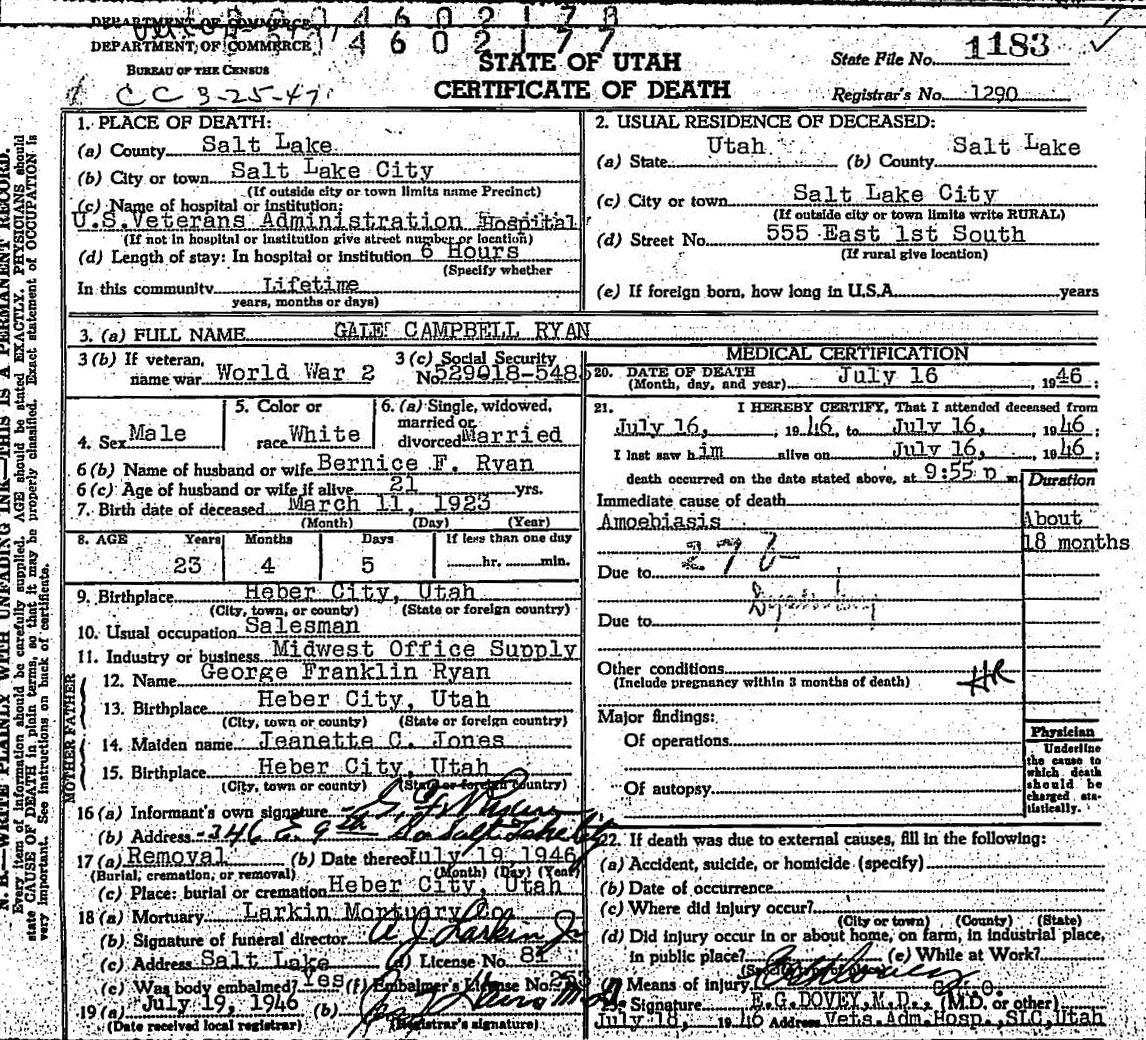 4602178
DEPARTMENT OF COMMERCE
4602177
DEPARTMENT OF COMMERCE
BUREAU OF THE CENSUS
CC 3-25-47
STATE OF UTAH
CERTIFICATE OF DEATH
State File No. 1183
Registrar's No. 1290
N. B.—WRITE PLAINLY WITH UNFADING INK—THIS IS A PERMANENT RECORD.
Every item of information should be carefully supplied. AGE should be stated EXACTLY. PHYSICIANS should
state CAUSE OF DEATH in plain terms, so that it may be properly classified. Exact statement of OCCUPATION is
very important. See instructions on back of certificate.
1. PLACE OF DEATH:
(a) County Salt Lake
(b) City or town Salt Lake City
(If outside city or town limits name Precinct)
(c) Name of hospital or institution:
U.S.Veterans Administration Hospital
(If not in hospital or institution give street number or location)
(d) Length of stay: In hospital or institution 6 Hours
(Specify whether
In this community Lifetime
years, months or days)
2. USUAL RESIDENCE OF DECEASED:
(a) State Utah (b) County Salt Lake
(c) City or town Salt Lake City
(If outside city or town limits write RURAL)
(d) Street No. 555 East 1st South
(If rural give location)
(e) If foreign born, how long in U.S.A. years
3. (a) FULL NAME GALE CAMPBELL RYAN
3 (b) If veteran,
name war World War 2
3 (c) Social Security
No. 529018-5485
4. Sex Male
5. Color or
race White
6. (a) Single, widowed,
married or
divorced Married
6 (b) Name of husband or wife Bernice F. Ryan
6 (c) Age of husband or wife if alive 21 yrs.
7. Birth date of deceased March 11, 1923
(Month) (Day) (Year)
8. AGE Years Months Days If less than one day
23 4 5 hr. min.
9. Birthplace Heber City, Utah
(City, town, or county) (State or foreign country)
10. Usual occupation Salesman
11. Industry or business Midwest Office Supply
FATHER
12. Name George Franklin Ryan
13. Birthplace Heber City, Utah
(City, town or county) (State or foreign country)
MOTHER
14. Maiden name Jeanette C. Jones
15. Birthplace Heber City, Utah
(City, town, or county) (State or foreign country)
16 (a) Informant's own signature
(b) Address 346 E 9th So Salt Lake City
17 (a) Removal (b) Date thereof July 19, 1946
(Burial, cremation, or removal) (Month) (Day) (Year)
(c) Place: burial or cremation Heber City, Utah
18 (a) Mortuary Larkin Mortuary Co
(b) Signature of funeral director A J Larkin Jr
(c) Address Salt Lake (d) License No. 81
(e) Was body embalmed? Yes (f) Embalmer's License No. 253
19 (a) July 19, 1946 (b)
(Date received local registrar) (Registrar's signature)
MEDICAL CERTIFICATION
20. DATE OF DEATH
(Month, day, and year) July 16, 1946:
21. I HEREBY CERTIFY, That I attended deceased from
July 16, 1946, to July 16, 1946:
I last saw him alive on July 16, 1946:
death occurred on the date stated above, at 9:55 p m.
Duration
Immediate cause of death
Amoebiasis
About
18 months
27b
Due to
Dysentery
Due to
Other conditions
(Include pregnancy within 3 months of death)
HR
Major findings:
Of operations
Of autopsy
Physician
Underline
the cause to
which death
should be
charged sta-
tistically.
22. If death was due to external causes, fill in the following:
(a) Accident, suicide, or homicide (specify)
(b) Date of occurrence
(c) Where did injury occur?
(City or town) (County) (State)
(d) Did injury occur in or about home, on farm, in industrial place,
in public place? (e) While at Work?
(f) Means of injury
23. Signature E.G.DOVEY,M.D., (M.D. or other)
July 18, 1946 Address Vets.Adm.Hosp.,SLC,Utah